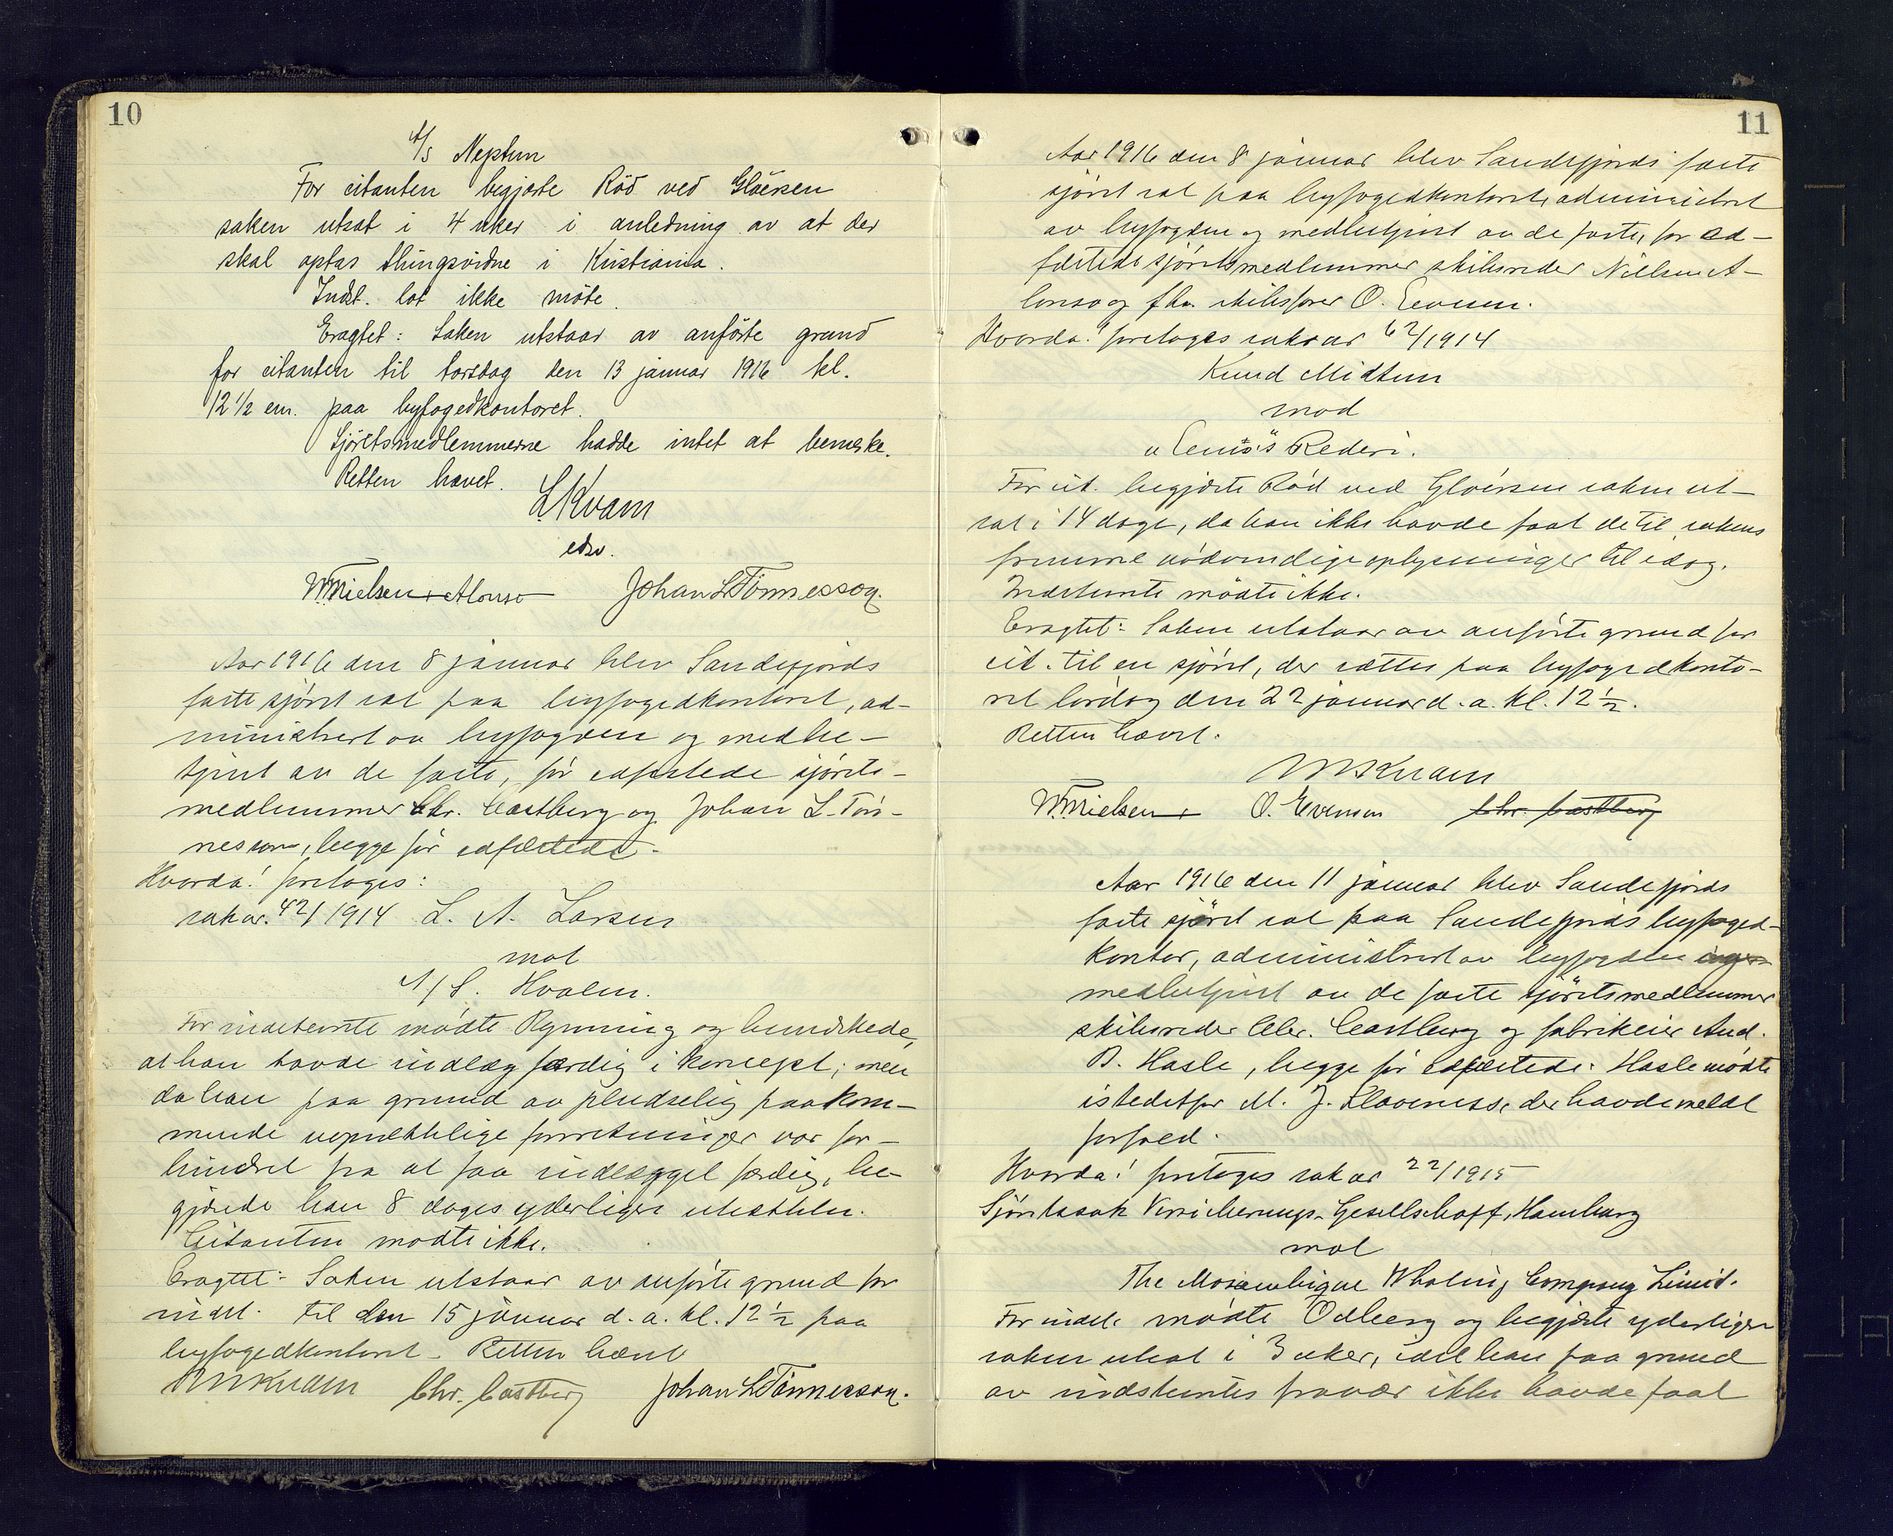 10
A/S Neptun
For citanten begjærte Rød ved Gløersen
saken utsat i 4 uker i anledning av at der
skal optas thingsvidne i Kristiania.
Indst. lot ikke møte.
Eragtet: Saken utstaar av anførte grund
for citanten til torsdag den 13 januar 1916 kl.
12 1/2 em. paa byfogedkontoret.
Sjøretsmedlemmerne hadde intet at bemerke.
Retten hævet.
L. Kvam
edsv.
W. Nielsen Alonso Johan L Tønnesson.
Aar 1916 den 8 januar blev Sandefjords
faste sjøret sat paa byfogedkontoret, ad-
ministrert av byfogden og medbe-
tjent av de faste, før edfæstede sjørets-
medlemmer Chr. Castberg og Johan L. Tøn-
nesson, begge før edfæstede.
Hvorda! foretoges:
sak nr. 42/1914 L. A. Larsen
mot
A/S. Hvalen.
For indstevnte mødte Rynning og bemerkede,
at han havde indlæg færdig i koncept; men
da han paa grund av pludselig paakom-
mende uopsættelige forretninger var for-
hindret fra at faa indlægget færdig, be-
gjærede han 8 dages yderligere utsettelse.
Citanten mødte ikke.
Eragtet: Saken utstaar av anførte grund for
indst. til den 15 januar d. a. kl. 12 1/2 paa
byfogedkontoret. Retten hævet
Kvam Chr. Castberg Johan L Tønnesson.
11
Aar 1916 den 8 januar blev Sandefjords faste
sjøret sat paa byfogedkontoret, administrert
av byfogden og medbetjent av de faste, før ed-
fæstede sjøretsmedlemmer skibsreder Nielsen A-
lonso og fhv. skibsfører O. Evensen.
Hvorda! foretoges sak nr 62/1914
Knud Midtun
mod
"Lenis" Rederi.
For cit. begjærte Rød ved Gløersen saken ut-
sat i 14 dage, da han ikke havde faat de til sakens
fremme nødvendige oplysninger til idag.
Indstevnte mødte ikke.
Eragtet: Saken utstaar av anførte grund for
cit. til en sjøret, der sættes paa byfogedkonto-
ret lørdag den 22 januar d. a. kl. 12 1/2.
Retten hævet.
Kvam
W. Nielsen O. Evensen Chr. Castberg
Aar 1916 den 11 januar blev Sandefjords
faste sjøret sat paa Sandefjords byfoged-
kontor, administrert av byfogden og
medbetjent av de faste sjøretsmedlemmer
skibsreder Chr. Castberg og fabrikeier And.
B. Hasle, begge før edfæstede. Hasle mødte
istedetfor M. J. Klaveness, der havde meldt
forfald.
Hvorda! foretoges sak nr 22/1915
Sjøretssak Versicherungs-Gesellschaft, Hamburg
mot
The Mosambique Whaling Company Limit.
For indst. mødte Ødberg og begjærte yderligere
saken utsat i 3 uker, idet han paa grund
av indstevntes fravær ikke havde faat